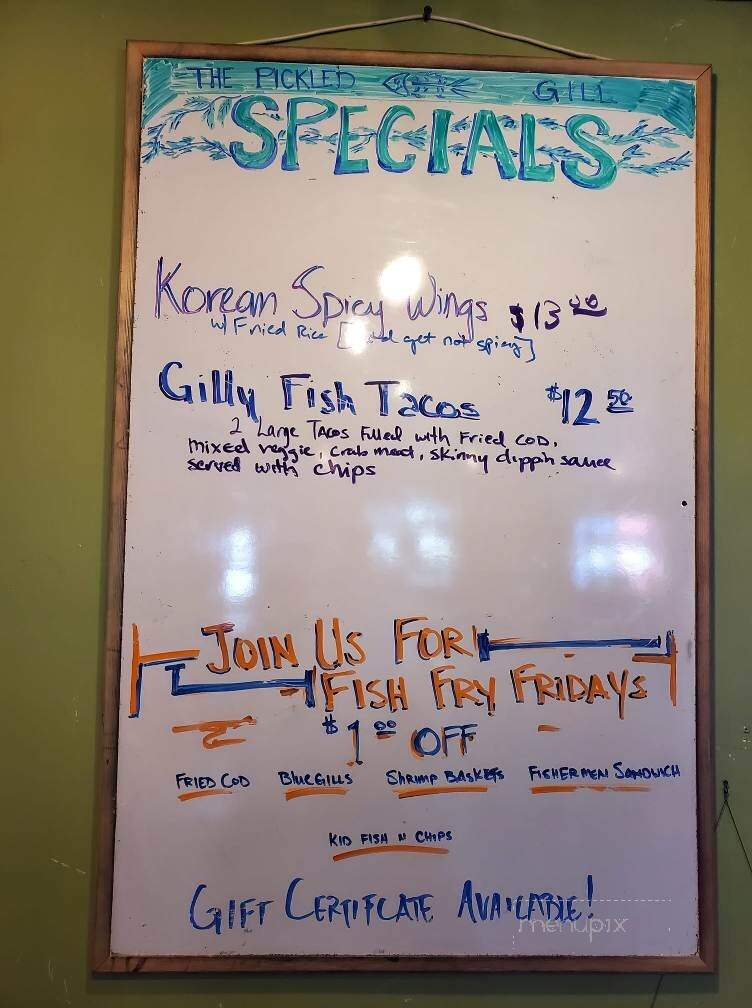 THE PICKLED GILL
SPECIALS
Korean Spicy Wings $13.00
w/ Fried Rice [ get not spicy]
Gilly Fish Tacos $12.50
2 Large Tacos Filled with Fried COD,
mixed veggie, crab meat, skinny dippin sauce
served with chips
JOIN US FOR
FISH FRY FRIDAYS
$1.00 OFF
FRIED COD BLUEGILLS SHRIMP BASKETS FISHERMEN SANDWICH
KID FISH N CHIPS
GIFT CERTIFCATE AVAILABLE!
menupix